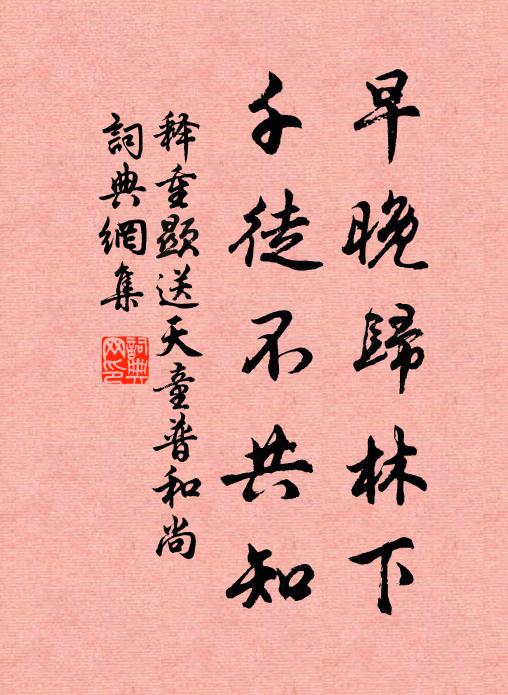 早晚歸林下
千徒不共知
释重顯送天童普和尚
詞典網集
詞典
网印